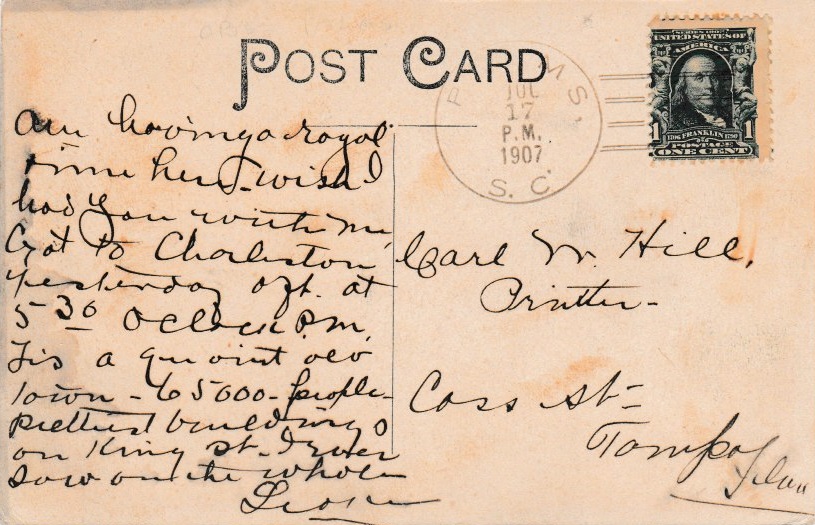 POST CARD
P MS.
JUL
17
P.M.
1907
S. C.
SERIES 1902
UNITED STATES OF
AMERICA
1 1706 FRANKLIN 1790 1
POSTAGE
ONE CENT
Am having a royal
time here - wish I
had you with me,
Got to Charleston
yesterday aft. at
5 30 O Clock P.m.
Tis a quaint old
town - 65000 - people -
prettiest buildings
on King St. I ever
saw on the whole
Carl W. Hill,
Printer -
Cass St =
Tampa
Fla